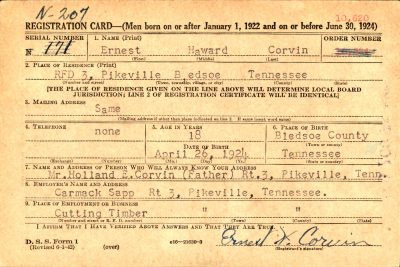 N-207
REGISTRATION CARD—(Men born on or after January 1, 1922 and on or before June 30, 1924)
10,620
SERIAL NUMBER 1. NAME (Print) ORDER NUMBER
N 171 Ernest Haward Corvin
(First) (Middle) (Last)
2. PLACE OF RESIDENCE (Print)
RFD 3, Pikeville B edsoe Tennessee
(Number and street) (Town, township, village, or city) (County) (State)
[THE PLACE OF RESIDENCE GIVEN ON THE LINE ABOVE WILL DETERMINE LOCAL BOARD
JURISDICTION; LINE 2 OF REGISTRATION CERTIFICATE WILL BE IDENTICAL]
3. MAILING ADDRESS
Same
(Mailing address if other than place indicated on line 2. If same insert word same)
4. TELEPHONE 5. AGE IN YEARS 6. PLACE OF BIRTH
none 18 Bledsoe County
DATE OF BIRTH (Town or county)
April 26, 1924 Tennessee
(Mo.) (Day) (Yr.) (State or country)
7. NAME AND ADDRESS OF PERSON WHO WILL ALWAYS KNOW YOUR ADDRESS
Mr.Holland E.Corvin (Father) Rt.3, Pikeville, Tenn.
8. EMPLOYER'S NAME AND ADDRESS
Carmack Sapp Rt 3, Pikeville, Tennessee.
9. PLACE OF EMPLOYMENT OR BUSINESS
Cutting Timber " "
(Number and street or R. F. D. number) (Town) (County) (State)
I AFFIRM THAT I HAVE VERIFIED ABOVE ANSWERS AND THAT THEY ARE TRUE.
D. S. S. Form 1
(Revised 6-1-42) (over) 16—21630-2 Ernest H. Corvin
(Registrant's signature)